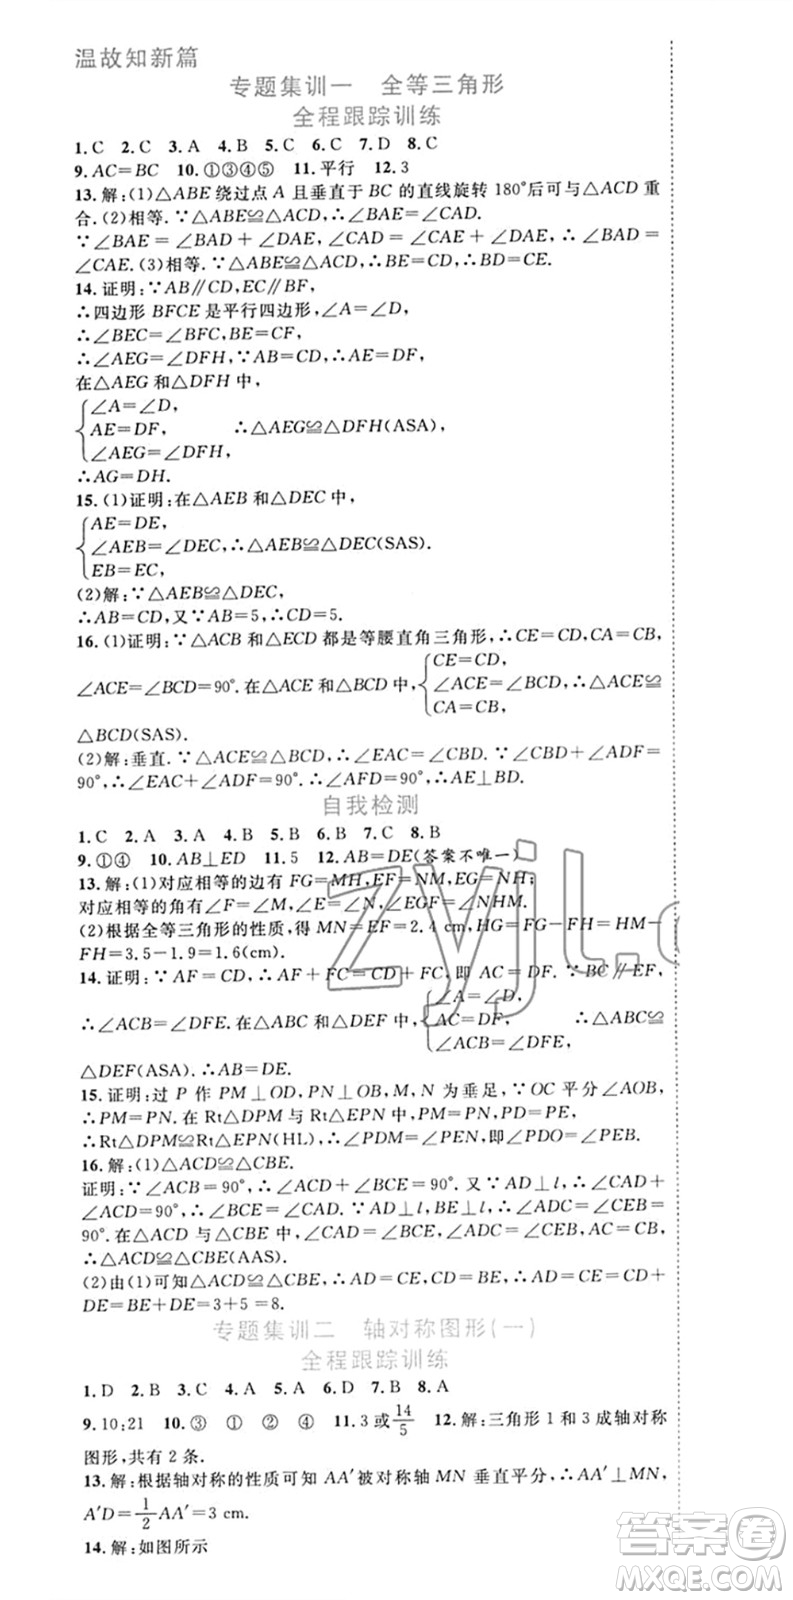 温故知新篇
专题集训一 全等三角形
全程跟踪训练
1.C 2.C 3.A 4.B 5.C 6.C 7.D 8.C
9.AC=BC 10.①③④⑤ 11.平行 12.3
13.解:(1)△ABE绕过点A且垂直于BC的直线旋转180°后可与△ACD重
合.(2)相等.∵△ABE≌△ACD,∴∠BAE=∠CAD.
∵∠BAE=∠BAD+∠DAE,∠CAD=∠CAE+∠DAE,∴∠BAD=
∠CAE.(3)相等.∵△ABE≌△ACD,∴BE=CD,∴BD=CE.
14.证明:∵AB∥CD,EC∥BF,
∴四边形BFCE是平行四边形,∠A=∠D,
∴∠BEC=∠BFC,BE=CF,
∴∠AEG=∠DFH,∵AB=CD,∴AE=DF.
在△AEG和△DFH中,
∠A=∠D,
AE=DF, ∴△AEG≌△DFH(ASA),
∠AEG=∠DFH,
∴AG=DH.
15.(1)证明:在△AEB和△DEC中,
AE=DE,
∠AEB=∠DEC,∴△AEB≌△DEC(SAS).
EB=EC,
(2)解:∵△AEB≌△DEC,
∴AB=CD,又∵AB=5,∴CD=5.
16.(1)证明:∵△ACB和△ECD都是等腰直角三角形,∴CE=CD,CA=CB,
CE=CD,
∠ACE=∠BCD=90°.在△ACE和△BCD中, ∠ACE=∠BCD,∴△ACE≌
CA=CB,
△BCD(SAS).
(2)解:垂直.∵△ACE≌△BCD,∴∠EAC=∠CBD.∵∠CBD+∠ADF=
90°,∴∠EAC+∠ADF=90°.∴∠AFD=90°.∴AE⊥BD.
自我检测
1.C 2.A 3.A 4.B 5.B 6.B 7.C 8.B
9.①④ 10.AB⊥ED 11.5 12.AB=DE(答案不唯一)
13.解:(1)对应相等的边有FG=MH,EF=NM,EG=NH;
对应相等的角有∠F=∠M,∠E=∠N,∠EGF=∠NHM.
(2)根据全等三角形的性质,得MN=EF=2.4 cm,HG=FG-FH=HM-
FH=3.5-1.9=1.6(cm).
14.证明:∵AF=CD,∴AF+FC=CD+FC,即AC=DF.∵BC∥EF,
∠A=∠D,
∴∠ACB=∠DFE.在△ABC和△DEF中, AC=DF, ∴△ABC≌
∠ACB=∠DFE,
△DEF(ASA).∴AB=DE.
15.证明:过P作PM⊥OD,PN⊥OE,M,N为垂足,∵OC平分∠AOB,
∴PM=PN.在Rt△DPM与Rt△EPN中,PM=PN,PD=PE,
∴Rt△DPM≌Rt△EPN(HL),∴∠PDM=∠PEN,即∠PDO=∠PEB.
16.解:(1)△ACD≌△CBE.
证明:∵∠ACB=90°,∴∠ACD+∠BCE=90°.又∵AD⊥l,∴∠CAD+
∠ACD=90°,∴∠CAD=∠BCE.∵AD⊥l,BE⊥l,∴∠ADC=∠CEB=
90°.在△ACD与△CBE中,∠CAD=∠BCE,∠ADC=∠CEB,AC=CB,
∴△ACD≌△CBE(AAS).
(2)由(1)可知△ACD≌△CBE,∴AD=CE=3,CD=BE=5,∴AD+CD=
DE=BE+DE=3+5=8.
专题集训二 轴对称图形(一)
全程跟踪训练
1.D 2.B 3.C 4.A 5.D 6.B 7.B 8.A
9.10:21 10.③ ① ② ④ 11.3或14/5 12.解:三角形1和3成轴对称
图形,共有2条.
13.解:根据轴对称的性质可知AA′被对称轴MN垂直平分,∴AA′⊥MN,
A′D=1/2AA′=3 cm.
14.解:如图所示
zyjl.c
答案圈
MXQE.COM